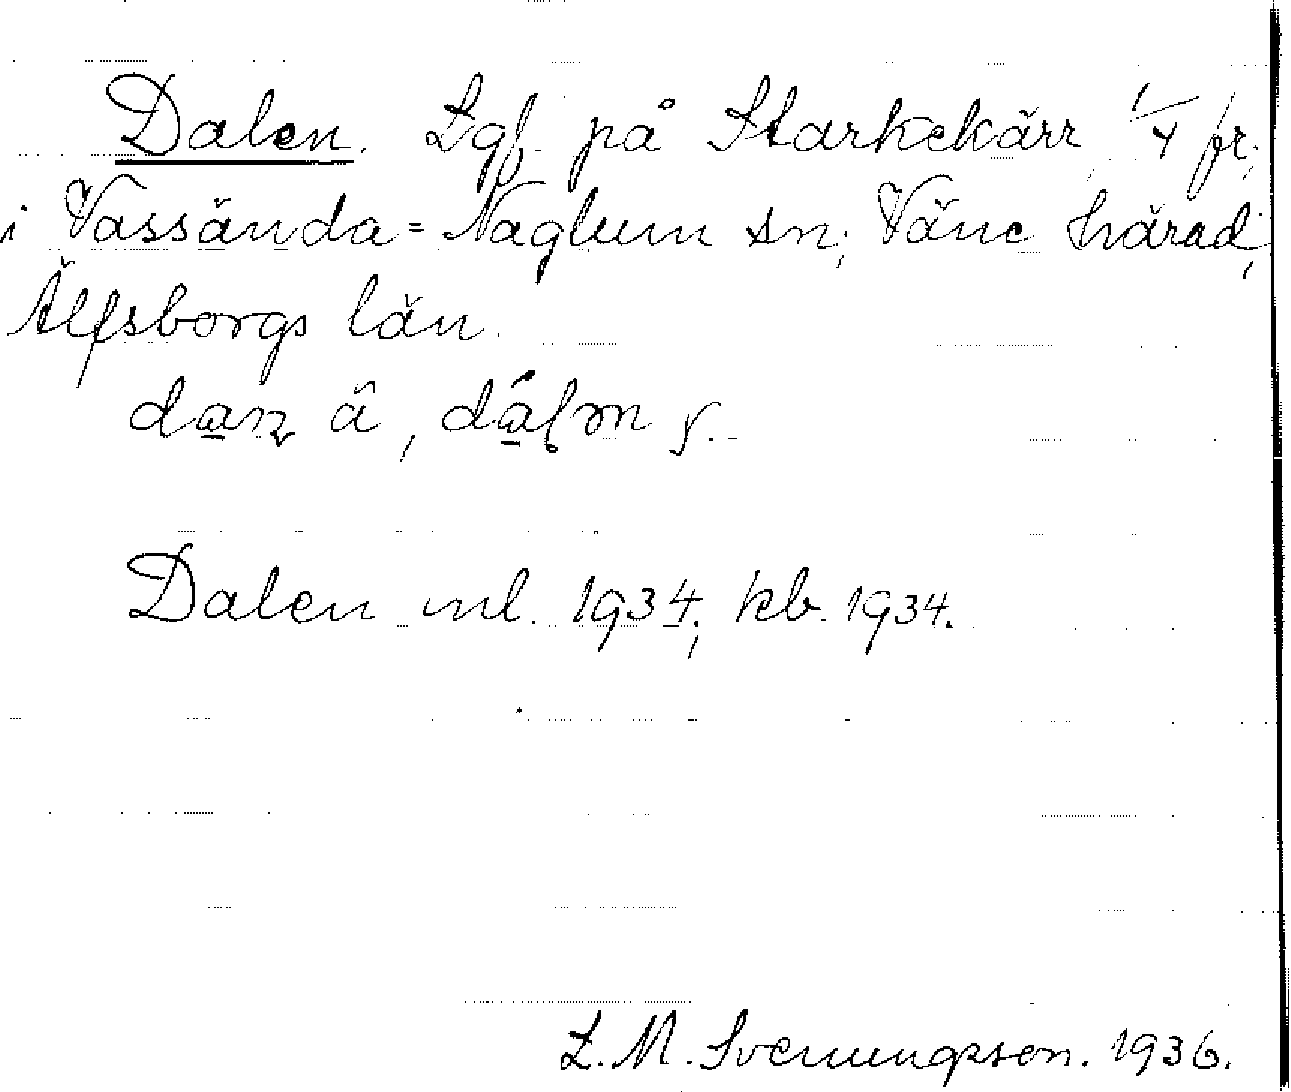 Dalen. Lgf. på Starkekärr 1/4 fr.,
i Vassända=Naglum sn, Väne härad,
Älfsborgs län.
Dalen ml. 1934, kb. 1934.
L. M. Svenungsson. 1936.